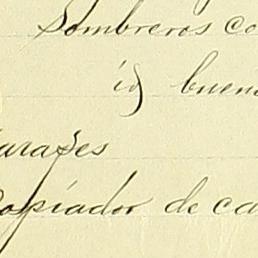 Sombreros co
id buen
arages
opiador de ca